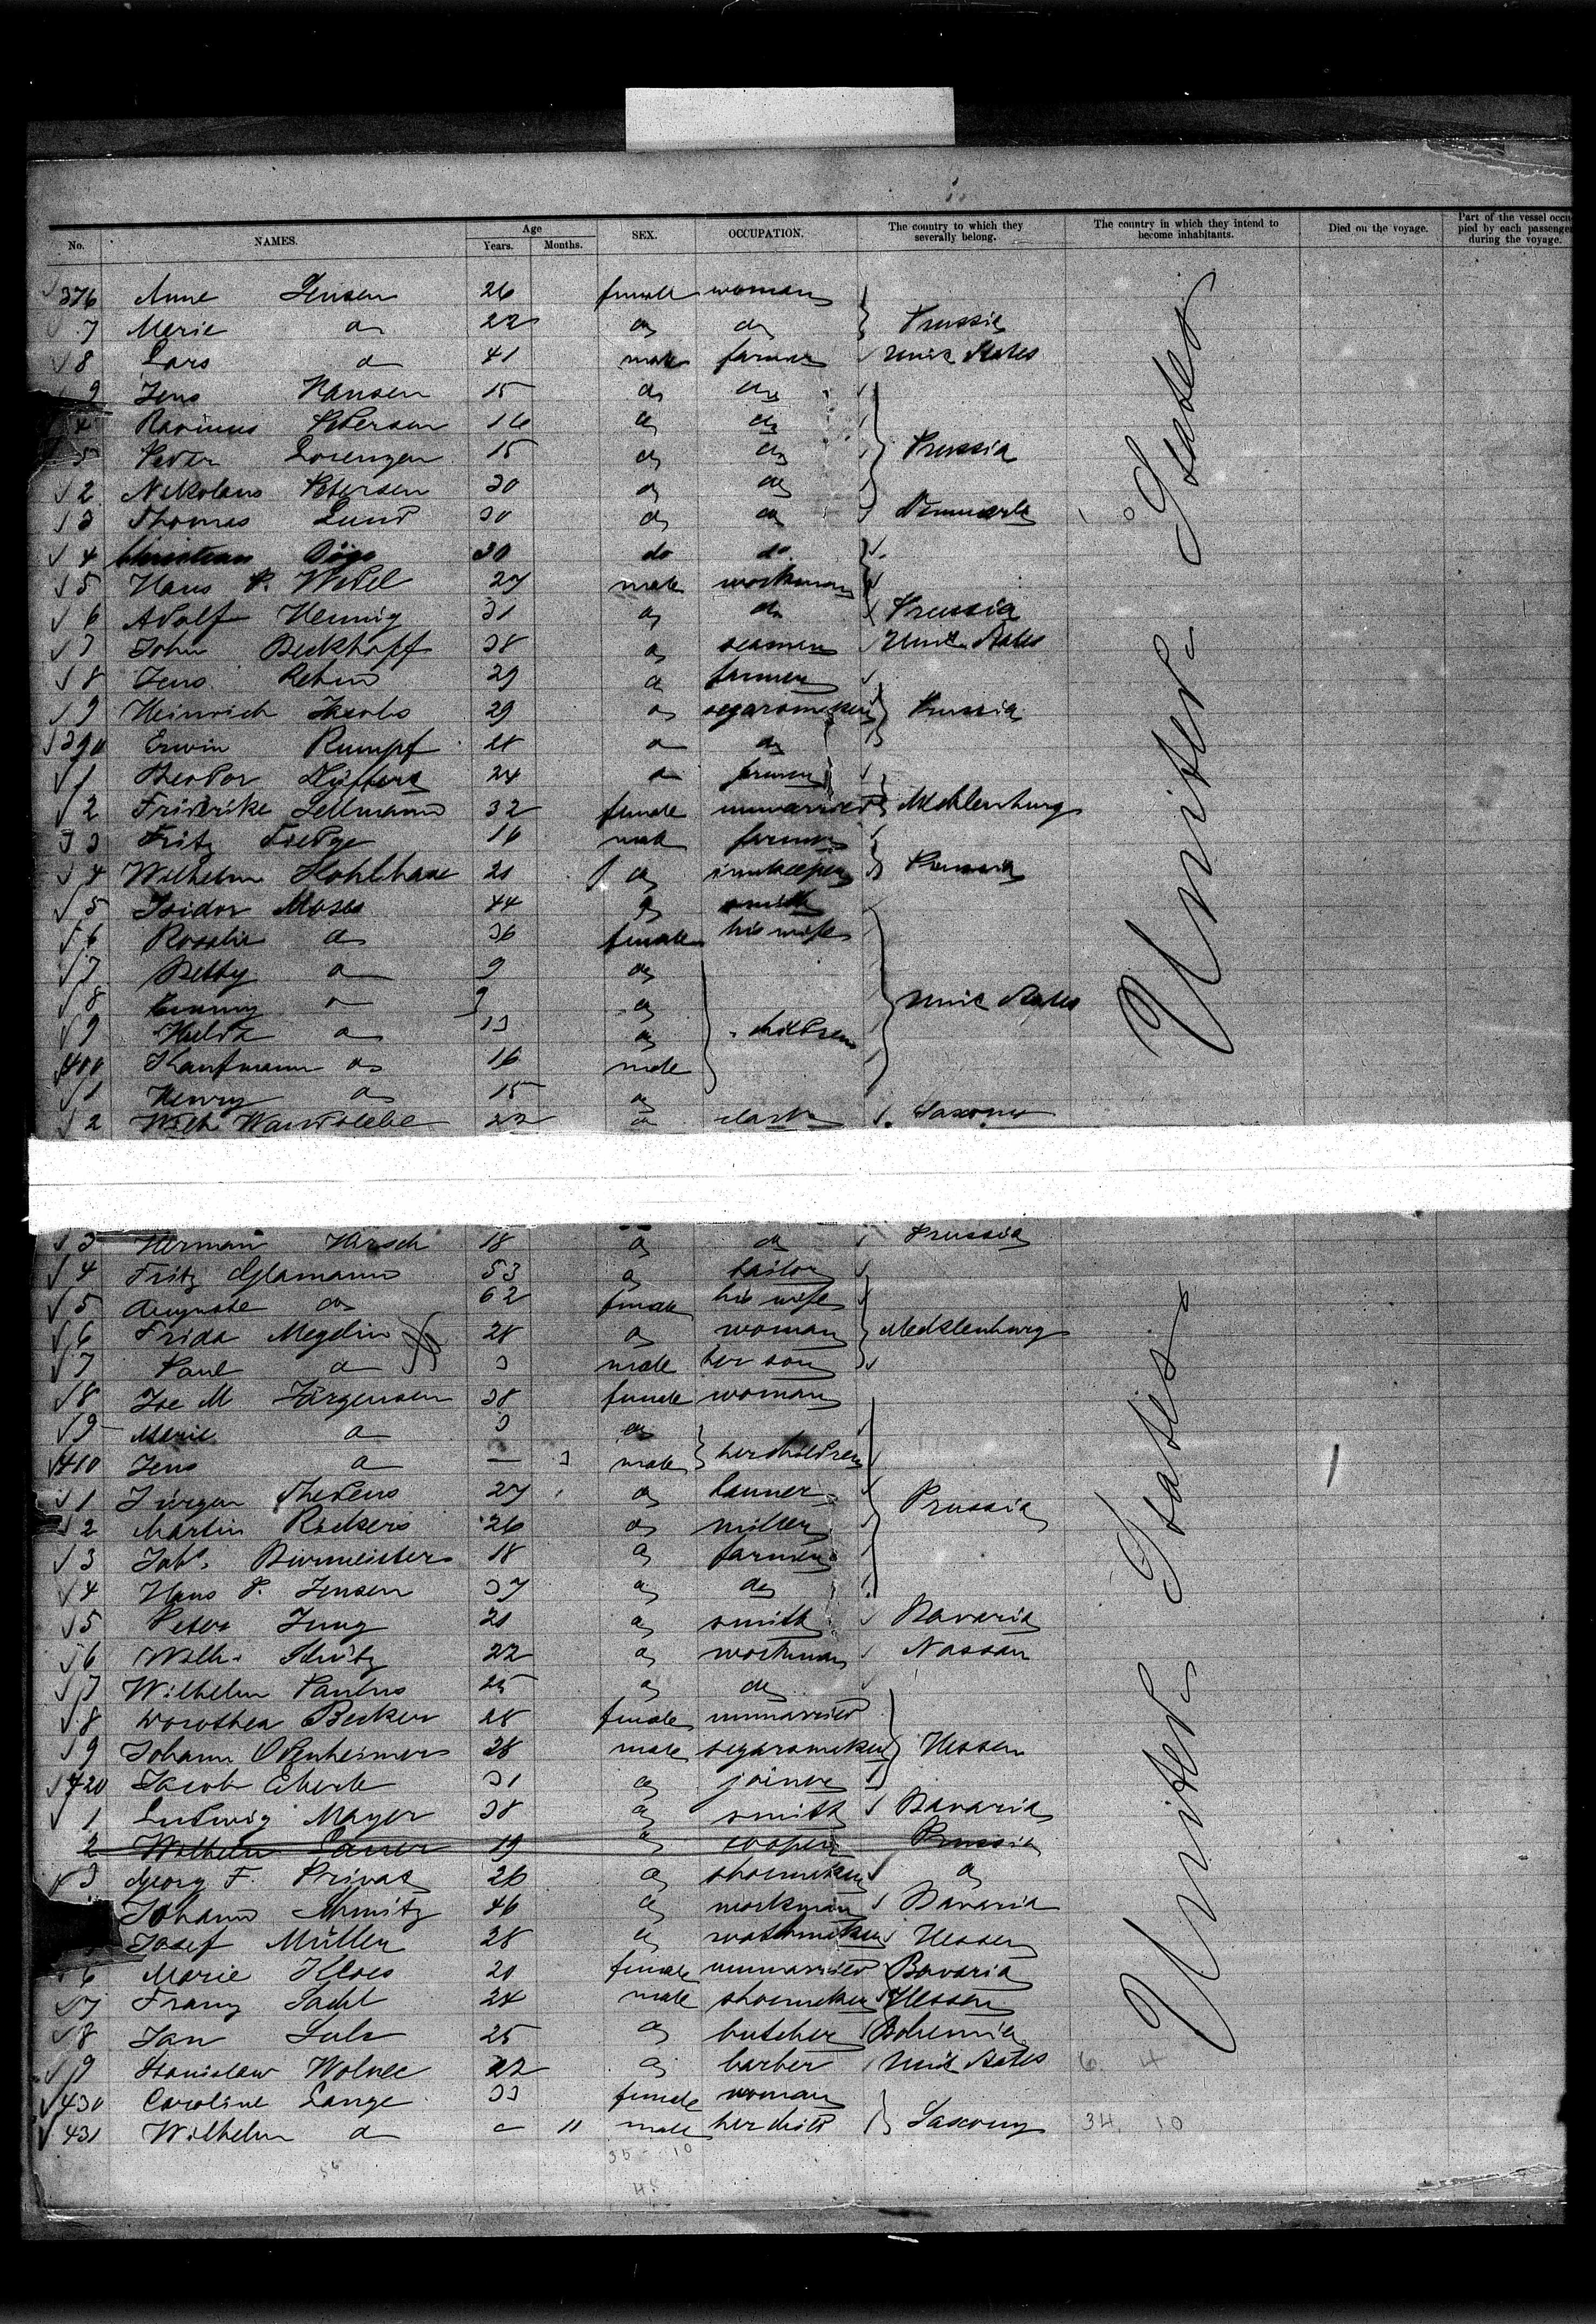 No. NAMES. Age Years. Months. SEX. OCCUPATION. The country to which they severally belong. The country in which they intend to become inhabitants. Died on the voyage. Part of the vessel occupied by each passenger during the voyage.
376 Anne Jensen 26 female woman
7 Marie do 22 do do Prussia
8 Lars do 41 male farmer Unit States
9 Jens Hansen 15 do do
Petersen 16 do do
Peter Lorenzen 15 do do Prussia
2 Nikolaus Petersen 30 do do
3 Thomas Lund 30 do do Denmark
4 Christian 30 do do
5 Hans P. Wedel 27 male workman
6 Adolf Hennig 31 do do Prussia
7 John Beckhoff 38 do seamen Unit States
8 Jens 29 do farmer
9 Heinrich Jacobs 29 do segarsmaker Prussia
390 Erwin Rumpf 28 do do
1 Theodor 24 do farmer
2 Friderike Sellmann 32 female unmarried Mecklenburg
3 Fritz 16 male farmer
4 Wilhelm Hohlhase 21 do innkeeper Prussia
5 Isidor Moses 44 do smith
6 Rosalie do 36 female his wife
7 Betty do 9 do
8 do do Unit States
9 Hulda do 13 do children
400 Kaufmann do 16 male
1 Henry do 15 do
2 Wilh. Wandsleble 22 do clark Saxony
United States
3 Herman Harsch 18 do do Prussia
4 Fritz Glamann 53 do tailor
5 Auguste do 62 female his wife
6 Frida Megelin 28 do woman Mecklenburg
7 Paul do 3 male her son
8 Jörgensen 38 female woman
9 Marie do 3 do
410 Jens do — 3 male her children
1 Jürgen Thedens 27 do tanner Prussia
2 Martin Rickers 26 do miller
3 Joh. Burmeister 18 do farmer
4 Hans P. Jensen 37 do do
5 Peter Jung 21 do smith Bavaria
6 Wilh. 22 do workman Nassau
7 Wilhelm Paulus 25 do do
8 Dorothea Becker 28 female unmarried
9 Johann Odenheimer 28 male segarsmaker Hessen
420 Jacob Eberle 31 do joiner
1 Ludwig Mayer 38 do smith Bavaria
2 Wilhelm Lauer 19 do cooper Prussia
3 Georg F. Privat 26 do shoemaker do
Johann Schmitz 46 do workman Bavaria
Josef Müller 28 do Hessen
6 Marie Kloes 20 female unmarried Bavaria
7 Franz Sachl 24 male shoemaker Hessen
8 Jan 25 do butcher Bohemia
9 Stanislaw Wolnec 22 do barber Unit States 6. 4
430 Caroline Lange 33 female woman
431 Wilhelm do — 11 male her child Saxony 34. 10
United States
35 - 10